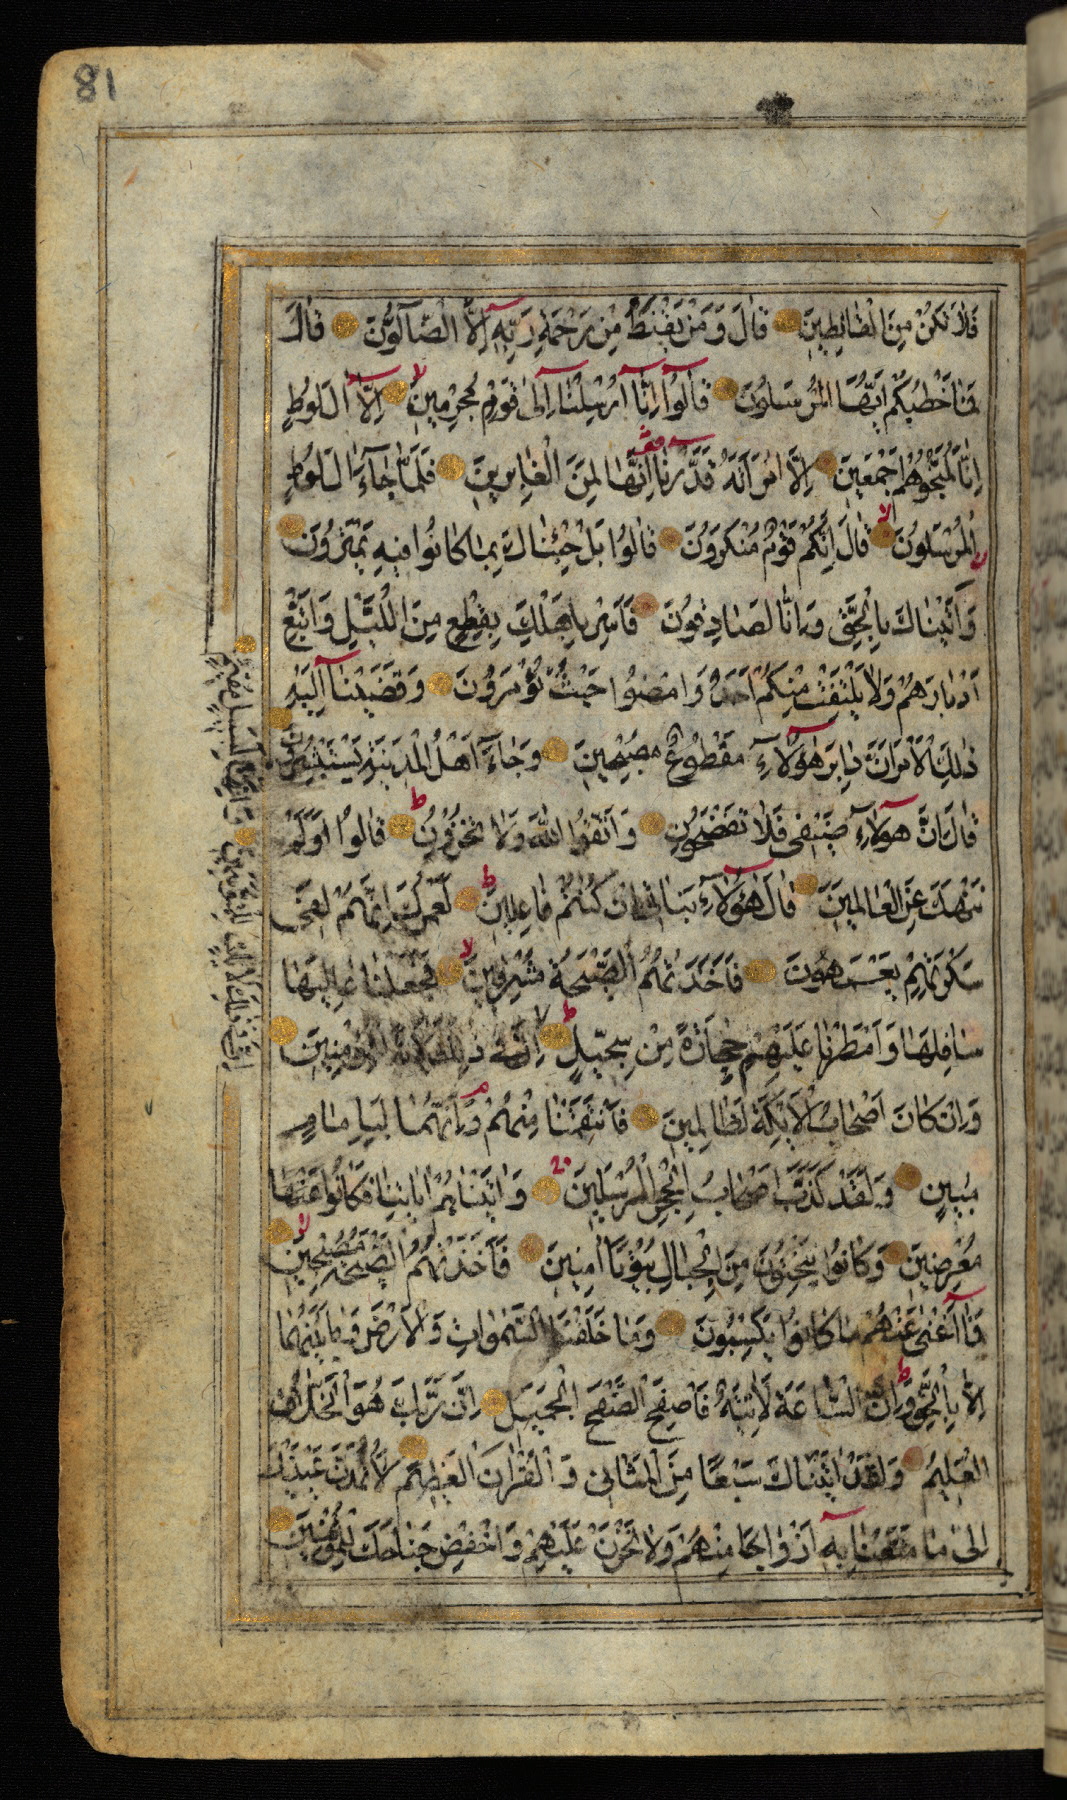 81
فَلاَ تَكُنْ مِنَ الْقَانِطِينَ قَالَ وَمَنْ يَقْنَطُ مِنْ رَحْمَةِ رَبِّهِ اِلَّا الضَّآلُّونَ قَالَ
فَمَا خَطْبُكُمْ اَيُّهَا الْمُرْسَلُونَ قَالُوا اِنَّا اُرْسِلْنَا اِلٰى قَوْمٍ مُجْرِمِينَ اِلَّا اٰلَ لُوطٍ
اِنَّا لَمُنَجُّوهُمْ اَجْمَعِينَ اِلَّا امْرَاَتَهُ قَدَّرْنَا اِنَّهَا لَمِنَ الْغَابِرِينَ فَلَمَّا جَآءَ اٰلَ لُوطٍ
الْمُرْسَلُونَ قَالَ اِنَّكُمْ قَوْمٌ مُنْكَرُونَ قَالُوا بَلْ جِئْنَاكَ بِمَا كَانُوا فِيهِ يَمْتَرُونَ
وَاَتَيْنَاكَ بِالْحَقِّ وَاِنَّا لَصَادِقُونَ فَاَسْرِ بِاَهْلِكَ بِقِطْعٍ مِنَ اللَّيْلِ وَاتَّبِعْ
اَدْبَارَهُمْ وَلَا يَلْتَفِتْ مِنْكُمْ اَحَدٌ وَامْضُوا حَيْثُ تُؤْمَرُونَ وَقَضَيْنَآ اِلَيْهِ
ذٰلِكَ الْاَمْرَ اَنَّ دَابِرَ هٰٓؤُلَآءِ مَقْطُوعٌ مُصْبِحِينَ وَجَآءَ اَهْلُ الْمَدِينَةِ يَسْتَبْشِرُونَ
قَالَ اِنَّ هٰٓؤُلَآءِ ضَيْفِى فَلَا تَفْضَحُونِ وَاتَّقُوا اللّٰهَ وَلَا تُخْزُونِ قَالُوا اَوَلَمْ
نَنْهَكَ عَنِ الْعَالَمِينَ قَالَ هٰٓؤُلَآءِ بَنَاتِى اِنْ كُنْتُمْ فَاعِلِينَ لَعَمْرُكَ اِنَّهُمْ لَفِى
سَكْرَتِهِمْ يَعْمَهُونَ فَاَخَذَتْهُمُ الصَّيْحَةُ مُشْرِقِينَ فَجَعَلْنَا عَالِيَهَا
سَافِلَهَا وَاَمْطَرْنَا عَلَيْهِمْ حِجَارَةً مِنْ سِجِّيلٍ اِنَّ فِى ذٰلِكَ لَاٰيَةً لِلْمُؤْمِنِينَ
وَاِنْ كَانَ اَصْحَابُ الْاَيْكَةِ لَظَالِمِينَ فَانْتَقَمْنَا مِنْهُمْ وَاِنَّهُمَا لَبِاِمَامٍ
مُبِينٍ وَلَقَدْ كَذَّبَ اَصْحَابُ الْحِجْرِ الْمُرْسَلِينَ وَاٰتَيْنَاهُمْ اٰيَاتِنَا فَكَانُوا عَنْهَا
مُعْرِضِينَ وَكَانُوا يَنْحِتُونَ مِنَ الْجِبَالِ بُيُوتًا اٰمِنِينَ فَاَخَذَتْهُمُ الصَّيْحَةُ مُصْبِحِينَ
فَمَآ اَغْنٰى عَنْهُمْ مَا كَانُوا يَكْسِبُونَ وَمَا خَلَقْنَا السَّمٰوَاتِ وَالْاَرْضَ وَمَا بَيْنَهُمَا
اِلَّا بِالْحَقِّ وَاِنَّ السَّاعَةَ لَاٰتِيَةٌ فَاصْفَحِ الصَّفْحَ الْجَمِيلَ اِنَّ رَبَّكَ هُوَ الْخَلَّاقُ
الْعَلِيمُ وَلَقَدْ اٰتَيْنَاكَ سَبْعًا مِنَ الْمَثَانِى وَالْقُرْاٰنَ الْعَظِيمَ لَا تَمُدَّنَّ عَيْنَيْكَ
اِلٰى مَا مَتَّعْنَا بِهِ اَزْوَاجًا مِنْهُمْ وَلَا تَحْزَنْ عَلَيْهِمْ وَاخْفِضْ جَنَاحَكَ لِلْمُؤْمِنِينَ